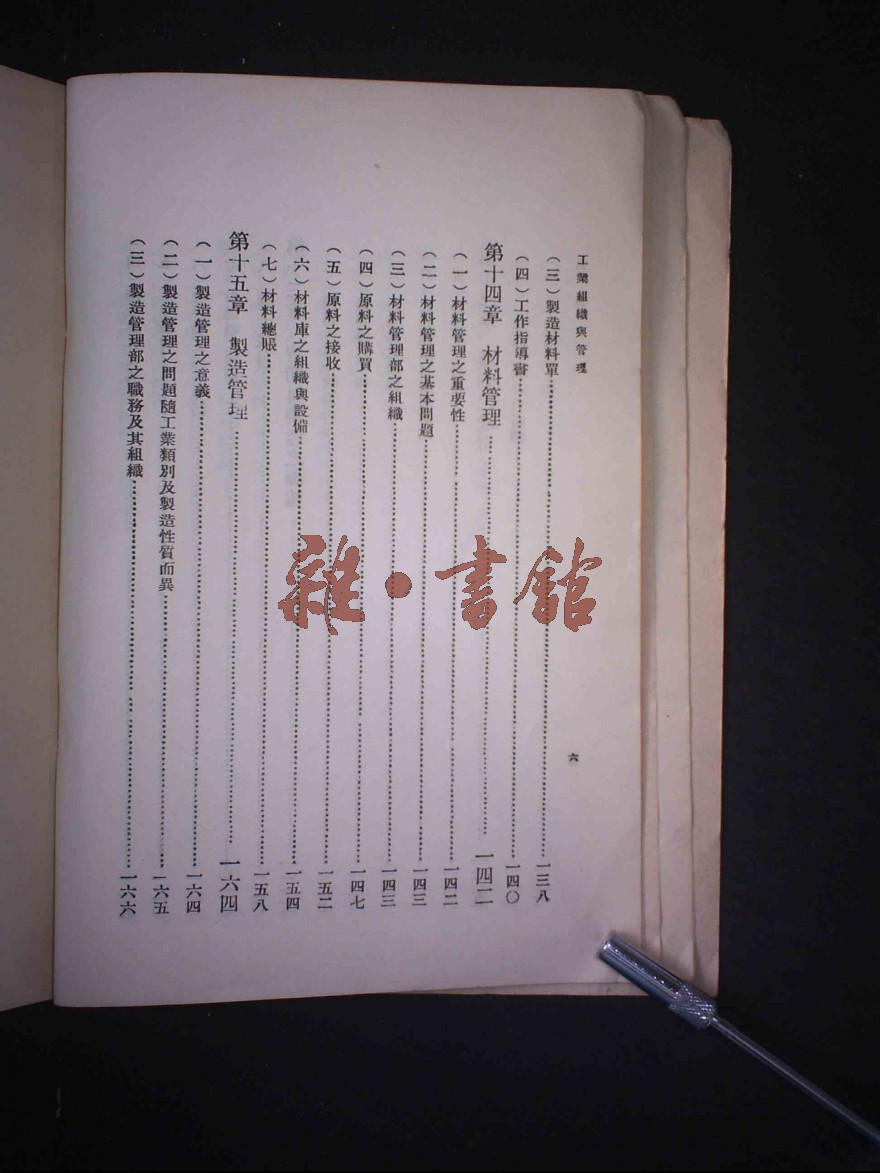 工業組織與管理
六
（三）製造材料單……一三八
（四）工作指導書……一四〇
第十四章　材料管理……一四二
（一）材料管理之重要性……一四二
（二）材料管理之基本問題……一四三
（三）材料管理部之組織……一四三
（四）原料之購買……一四七
（五）原料之接收……一五二
（六）材料庫之組織與設備……一五四
（七）材料總賬……一五八
第十五章　製造管理……一六四
（一）製造管理之意義……一六四
（二）製造管理之問題隨工業類別及製造性質而異……一六五
（三）製造管理部之職務及其組織……一六六
雜·書館